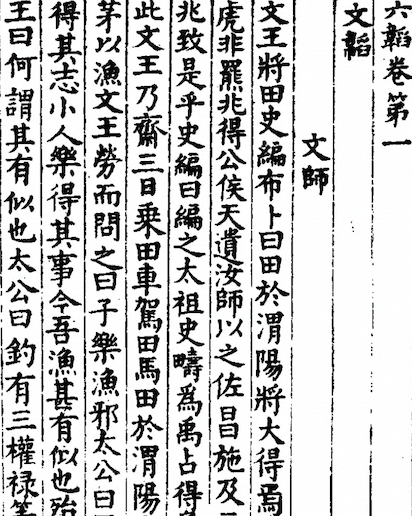 六韜卷第一
文韜
文師
文王將田史編布卜曰田於渭陽將大得焉
虎非羆兆得公侯天遺汝師以之佐昌施及
兆致是乎史編曰編之太祖史疇爲禹占得
此文王乃齋三日乗田車駕田馬田於渭陽
茅以漁文王勞而問之曰子樂漁邪太公曰
得其志小人樂得其事今吾漁甚有似也殆
王曰何謂其有似也太公曰釣有三權禄等